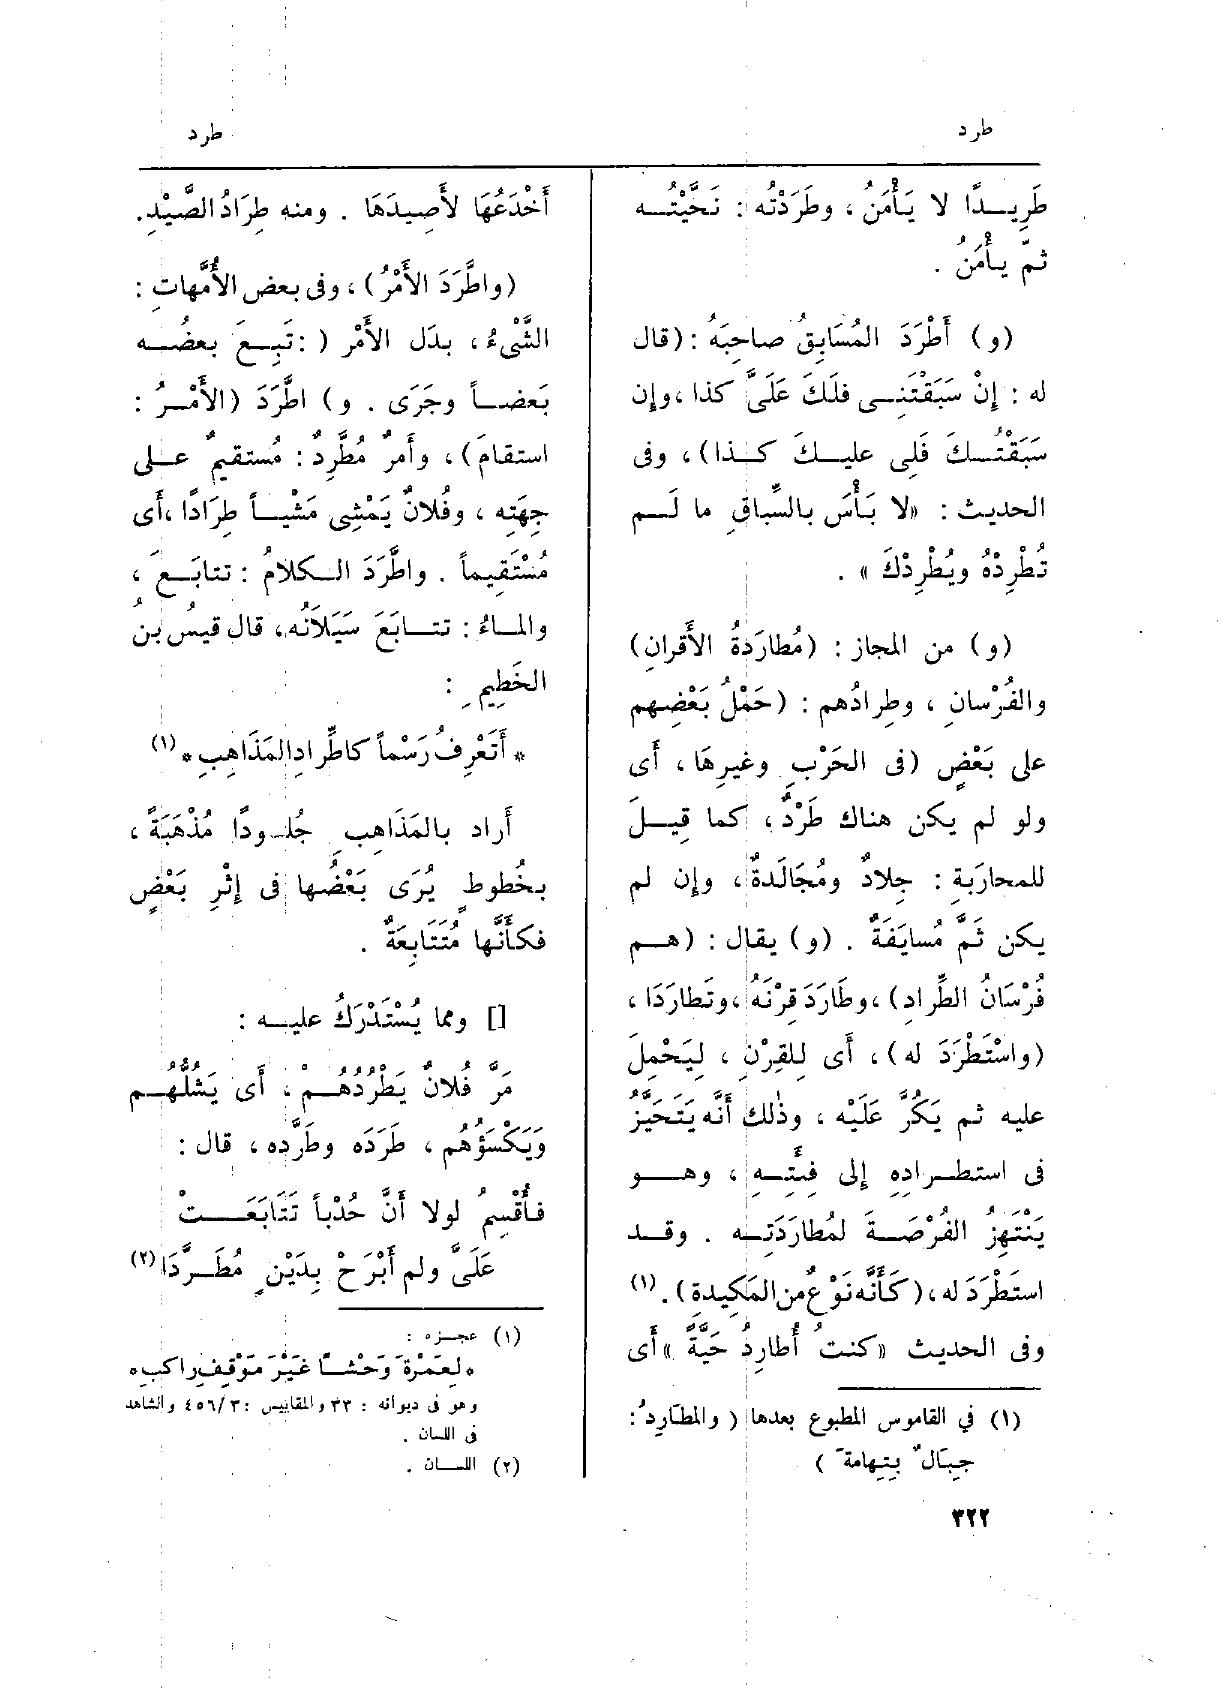 طرد
طرد
طَرِيــدًا لا يَـأْمَنُ ، وطَرَدْتُه : نَحَّيْتُــه
ثمّ يـأْمَنُ .
(و) أَطْرَدَ المُسَابِقُ صاحِبَهُ : (قال
له : إِنْ سَبَقْتَنِــى فلَكَ عَلَىَّ كذا ، وإِن
سَبَقْتُــكَ فَلِى عليــكَ كــذا) ، وفى
الحديث : «لا بَـأْسَ بالسِّباقِ ما لَــم
تُطْرِدْهُ ويُطْرِدْكَ » .
(و) من المجاز : (مُطارَدةُ الأَقرانِ)
والفُرْسانِ ، وطِرادُهم : (حَمْلُ بَعْضِهم
على بَعْضٍ (فى الحَرْبِ وغيرِهَا ، أَى
ولو لم يكن هناك طَرْدٌ ، كما قِيــلَ
للمحارَبةِ : جِلادٌ ومُجَالَدةٌ ، وإِن لم
يكن ثَمَّ مُسايَفَةٌ . (و) يقال : (هــم
فُرْسَانُ الطِّرادِ) ، وطَارَدَ قِرْنَهُ ، وتَطارَدَا ،
(واسْتَطْرَدَ له) ، أَى لِلقِرْنِ ، لِيَحْمِلَ
عليه ثم يَكُرَّ عَلَيْه ، وذٰلك أَنَّه يَتَحَيَّزُ
فى استطــرادِه إِلى فِئَتِــه ، وهــو
يَنْتَهِزُ الفُرْصَــةَ لمُطارَدَتِــه . وقــد
استَطْرَدَ له ، (كَأَنَّه نَوْعٌ من المَكِيدة) . (١)
وفى الحديث «كنتُ أُطارِدُ حَيَّةً » أَى
(١) في القاموس المطبوع بعدها ( والمطَارِدُ :
جبَالٌ بِتِهامةَ )
أَخْدَعُهَا لأَصِيدَهَا . ومنه طِرَادُ الصَّيْدِ.
(واطَّرَدَ الأَمْرُ) ، وفى بعض الأُمَّهاتِ :
الشَّىْءُ ، بدَل الأَمْر ( : تَبِــعَ بعضُــه
بَعضــاً وجَرَى . و) اطَّرَدَ (الأَمْــرُ :
استقامَ) ، وأَمرٌ مُطَّرِدٌ : مُستقيمٌ علــى
جِهَتِه ، وفُلانٌ يَمْشِى مَشْيــاً طِرَادًا ، أَى
مُسْتَقِيماً . واطَّرَدَ الــكلامُ : تتابَــعَ ،
والمــاءُ : تتــابَعَ سَيَلَانُه ، قال قيسُ بن
الخَطِيمِ :
* أَتَعْرِفُ رَسْماً كاطِّرادِ المَذَاهِبِ * (١)
أَراد بالمَذَاهِبِ جُلــودًا مُذْهَبَةً ،
بخُطوطٍ يُرَى بَعْضُها فى إِثْرِ بَعْضٍ
فكأَنَّها مُتَتَابِعَةٌ .
[] ومما يُسْتَدْرَكُ عليــه :
مَرَّ فُلانٌ يَطْرُدُهــمْ ، أَى يَشُلُّهــم
وَيَكْسَؤُهُم ، طَرَدَه وطَرَّده ، قال :
فـأُقْسِمُ لولا أَنَّ حُدْباً تَتَابَعَــتْ
عَلَىَّ ولم أَبْرَحْ بِدَيْنٍ مُطَــرَّدَا (٢)
(١) عجــزه :
* لِعَمْرَةَ وَحْشــاً غَيْرَ مَوْقِفِ راكبِ *
وهو فى ديوانه : ٣٣ والمقاييس : ٤٥٦/٣ والشاهد
فى اللسان .
(٢) اللســان .
٣٢٢